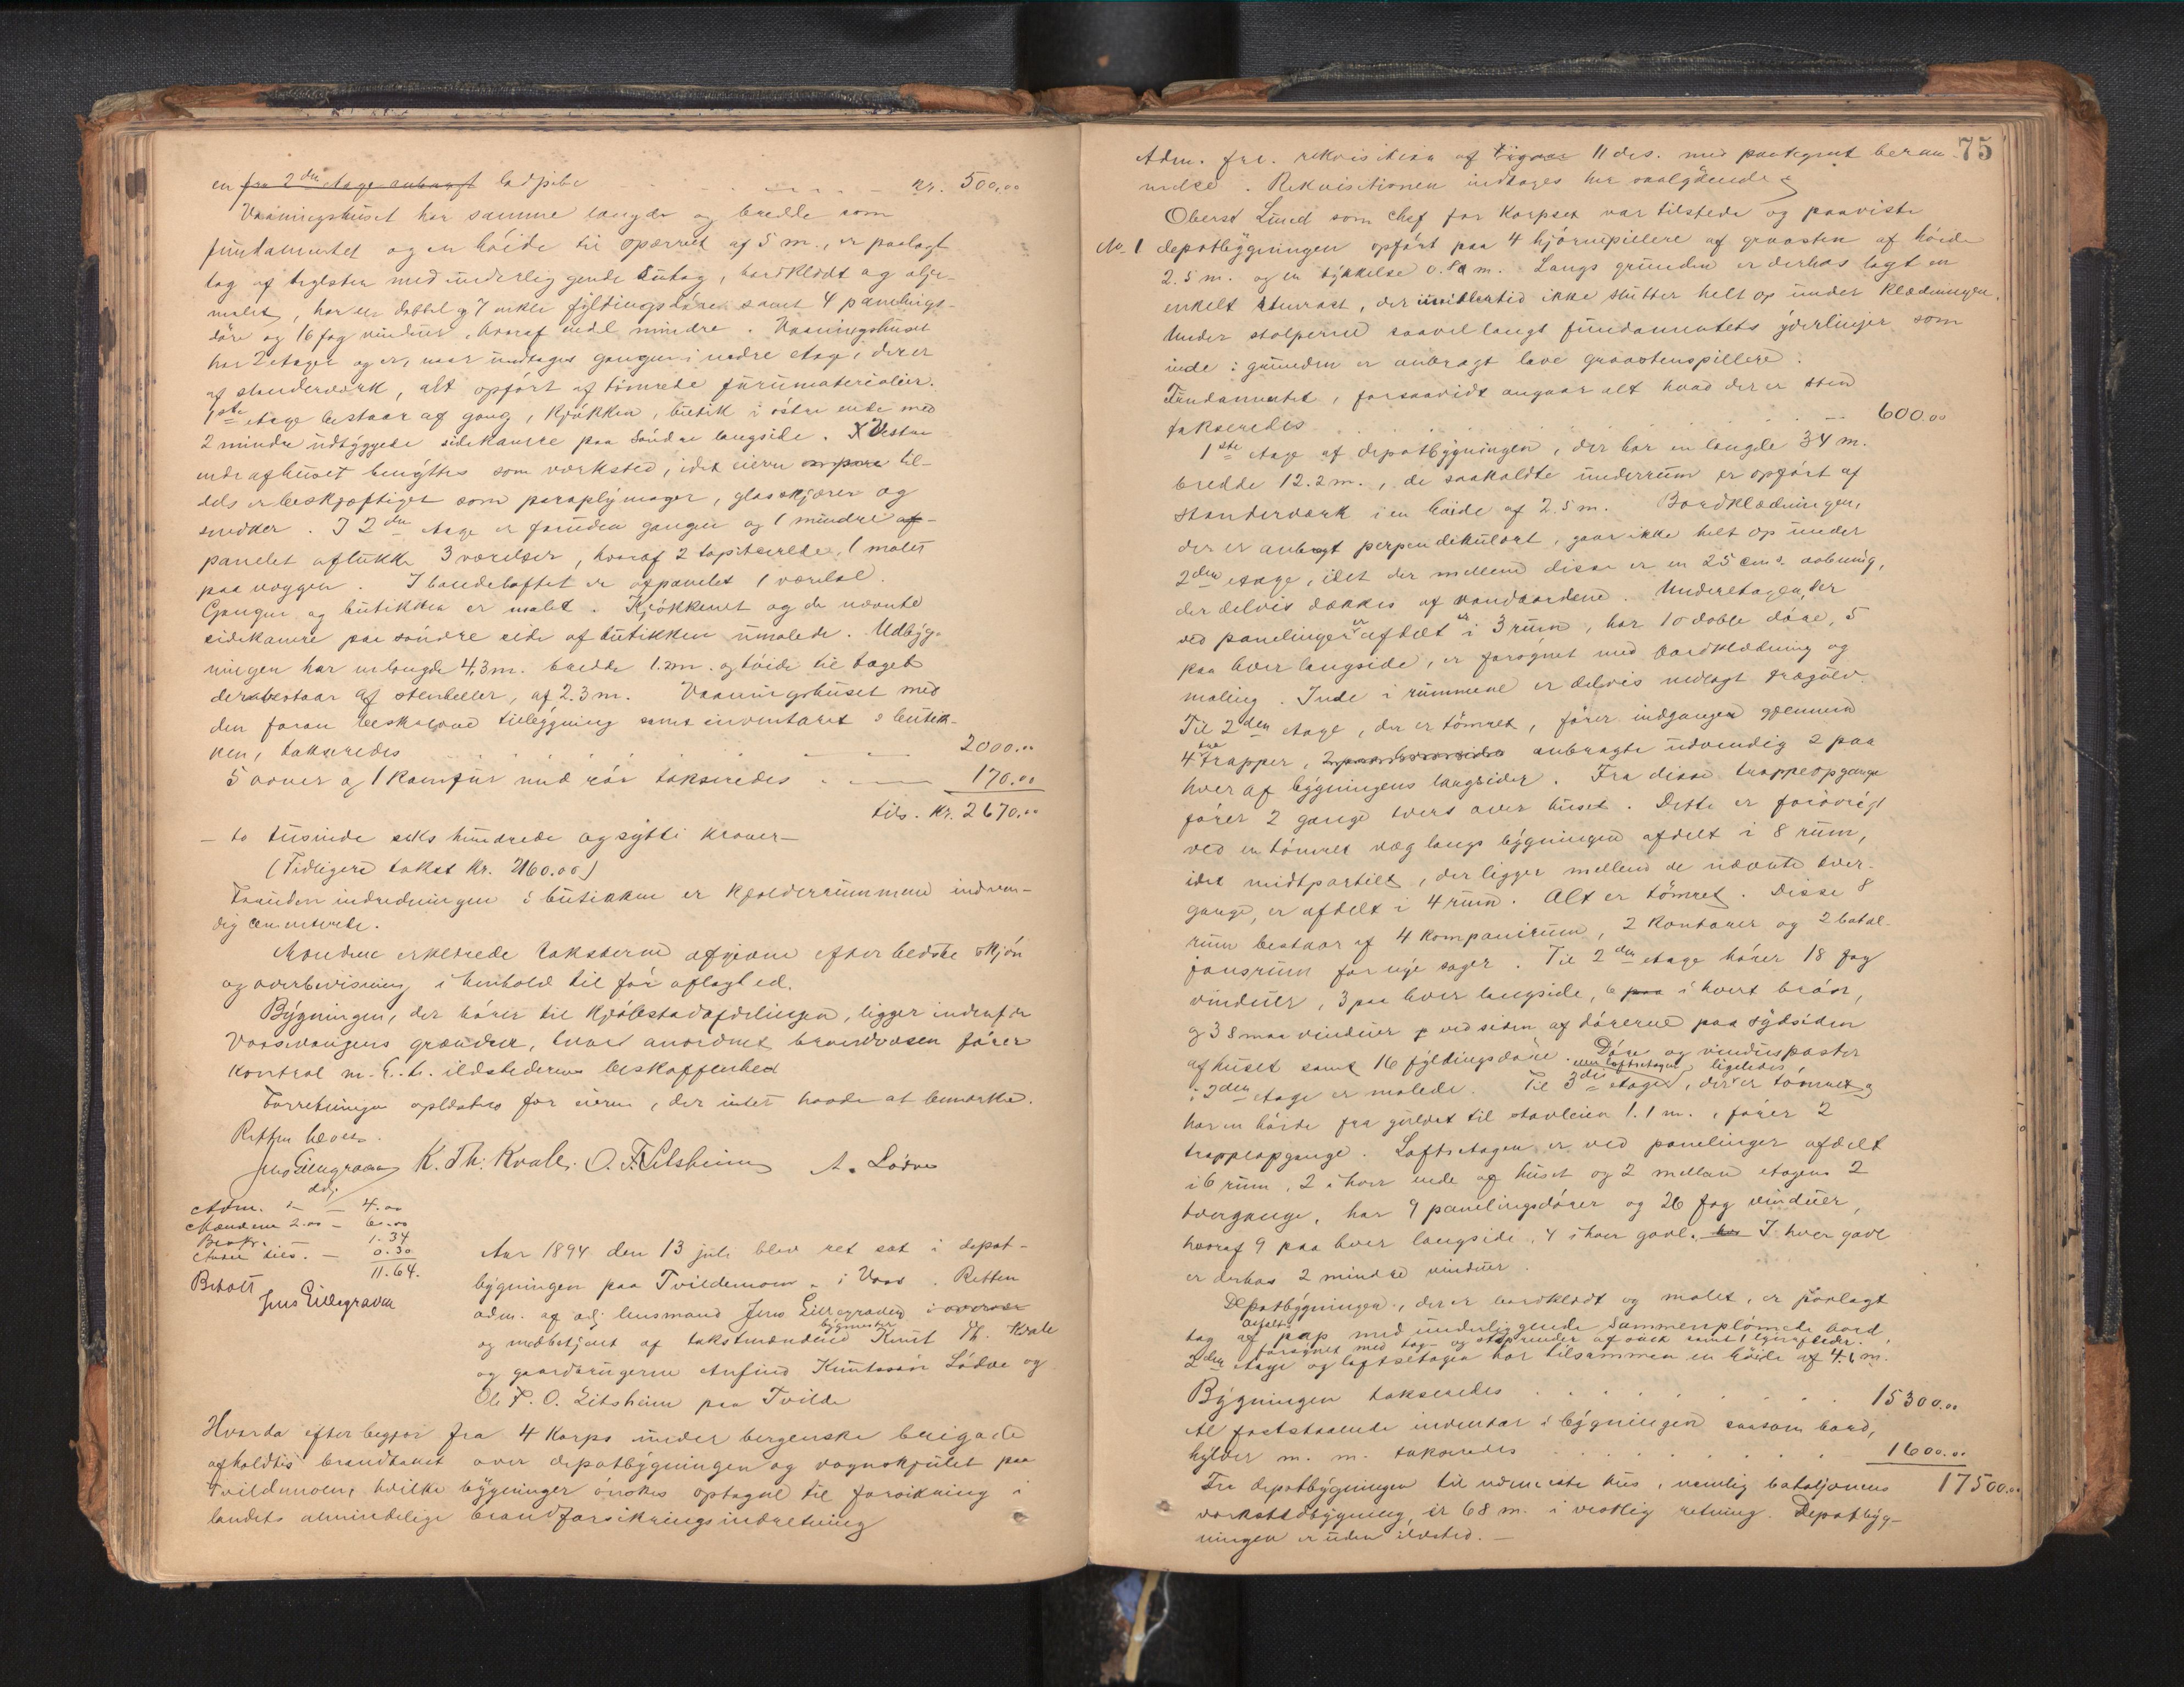 en fra 2den etage anbragt ladpibe kr. 500,00
Vaaningshuset har samme længde og bredde som
fundamentet og en höide til opærret af 5 m., er paalagt
tag af teglsten med underliggende sutag, bordklædt og olje-
malet, har en dobbel og 7 enkle fyldingsdöre samt 4 panelings-
döre og 16 fag vinduer, hvoraf endel mindre. Vaaningshuset
har 2 etager og er, naar undtages gangen i nedre etage, der er
af stenderværk, alt opfört af tömrede furumaterialier.
1ste etage bestaar af gang, kjökken, butik i östre ende med
2 mindre udbyggede sidekamre paa söndre langside. Vestre
ende af huset benyttes som værksted, idet eieren til-
dels er beskjæftiget som paraplymager, glasskjærer og
snedker. I 2den etage er foruden gangen og 1 mindre af-
panelet aflukke 3 værelser, hvoraf 2 tapitserede, 1 malet
paa væggen. I bordeloftet er afpanelet 1 værelse.
Gangen og butikken er malet. Kjökkenet og de nævnte
sidekamre paa söndre side af butikken umalede. Udbyg-
ningen har en længde 4,3 m. bredde 1.2m. og höide til taget
der bestaar af stenheller, af 2.3 m. Vaaningshuset med
den foran beskrevne tilbygning samt inventaret i butik-
ken, takseredes 2000.00
5 ovner og 1 komfur med rör takseredes 170.00
tils. kr. 2670.00
— to tusinde seks hundrede og sytti kroner —
(Tidligere takst kr. 2160.00)
Foruden indredningen i butikken er kjælderrummene indven-
dig cementerte.
Mændene erklærede taksterne afgivne efter bedste skjön
og overbevisning i henhold til för aflagt ed.
Bygningen, der hörer til kjöbstadafdelingen, ligger indenfor
Vossevangens grændser, hvor anordnet brandvæsen förer
kontrol m. h. t. ildstedernes beskaffenhed
Forretningen oplæstes for eieren, der intet havde at bemærke.
Retten hævet.
Jens Lillegraven K. Th. Kvale. O. F. Litsheim A. Lödve
adj.
Adm. 4.00
Mændene 2.00 — 6.00
1.34
0.30
11.64.
Betalt
Jens Lillegraven
Aar 1894 den 13 juli blev ret sat i depot-
bygningen paa Tvildemoen i Voss. Retten
adm. af adj. lensmand Jens Lillegraven i overvær
og medbetjent af takstmændene bygmester Knut Th. Kvale
og gaardbrugerne Anfind Knutssön Lödve og
Ole F. O. Litsheim paa Tvilde
Hvorda efter begjær fra 4 korps under bergenske brigade
afholdtes brandtakst over depotbygningen og vognskjulet paa
Tvildemoen, hvilke bygninger önskes optagne til forsikring i
landets almindelige brandforsikringsindretning
75
Adm. frl. rekvisition af 11 ds. med paategnet beram-
melse. Rekvisitionen indtages her saalydende
Oberst Lund som chef for korpset var tilstede og paaviste
No 1 depotbygningen opfört paa 4 hjörnepillere af graasten af höide
2.5 m. og en tykkelse 0.80 m. Langs grunden er derhos lagt en
enkelt stenrast, der imidlertid ikke slutter helt op under klædningen.
Under stolperne saavel langs fundamentets yderlinjer som
inde i grunden er anbragt lave graastenspillere.
Fundamentet, forsaavidt angaar alt hvad der er sten
takseredes 600.00
1ste etage af depotbygningen, der har en længde 34 m.
bredde 12.2 m., de saakaldte underrum er opfört af
stenderværk i en höide af 2.5 m. Bordklædningen,
der er anbragt perpendikulært, gaar ikke helt op under
2den etage, idet der mellem disse er en 25 cms. aabning,
der delvis dækkes af vandbordene. Underetagen, der
ved panelinger er afdelt i 3 rum, har 10 doble döre, 5
paa hver langside, er forsynet med bordklædning og
maling. Inde i rummene er delvis nedlagt trægulv.
Til 2den etage, der er tömret, förer indgangen gjennem
4 trapper, anbragte udvendig 2 paa
hver af bygningens langsider. Fra disse trappeopgange
förer 2 gange tvers over huset. Dette er forövrigt
ved en tömret væg langs bygningen afdelt i 8 rum,
idet midtpartiet, der ligger mellem de nævnte tver-
gange, er afdelt i 4 rum. Alt er tömret. Disse 8
rum bestaar af 4 kompanirum, 2 kontorer og 2 batal-
jonsrum for nye sager. Til 2den etage hörer 18 fag
vinduer, 3 paa hver langside, 6 paa i hvert bröst,
og 3 smaa vinduer ved siden af dörerne paa sydsiden
af huset samt 16 fyldingsdöre. Döre og vinduesposter
i 2den etage er malede. Til 3die etage, eller loftsetagen, der ligeledes er tömret og
har en höide fra gulvet til stavleien 1.1 m., förer 2
trappeopgange. Loftsetagen er ved panelinger afdelt
i 6 rum, 2 i hver ende af huset og 2 mellem etagens 2
tvergange, har 9 panelingsdörer og 26 fag vinduer,
hvoraf 9 paa hver langside, 4 i hver gavl. I hver gavl
er derhos 2 mindre vinduer.
Depotbygningen, der er bordklædt og malet, er paalagt
tag af asfalt pap med underliggende sammenplöiede bord,
forsynet med tag- og stuprender af sink samt 1 lynafleder.
2den etage og loftsetagen har tilsammen en höide af 4.6 m.
Bygningen takseredes 15300.00
Al faststaaende inventar i bygningen saasom bord,
hylder m. m. takseredes 1600.00
Fra depotbygningen til nærmeste hus, nemlig bataljonens 17500.00
værkstedbygning, er 68 m. i vestlig retning. Depotbyg-
ningen er uden ildsted. —